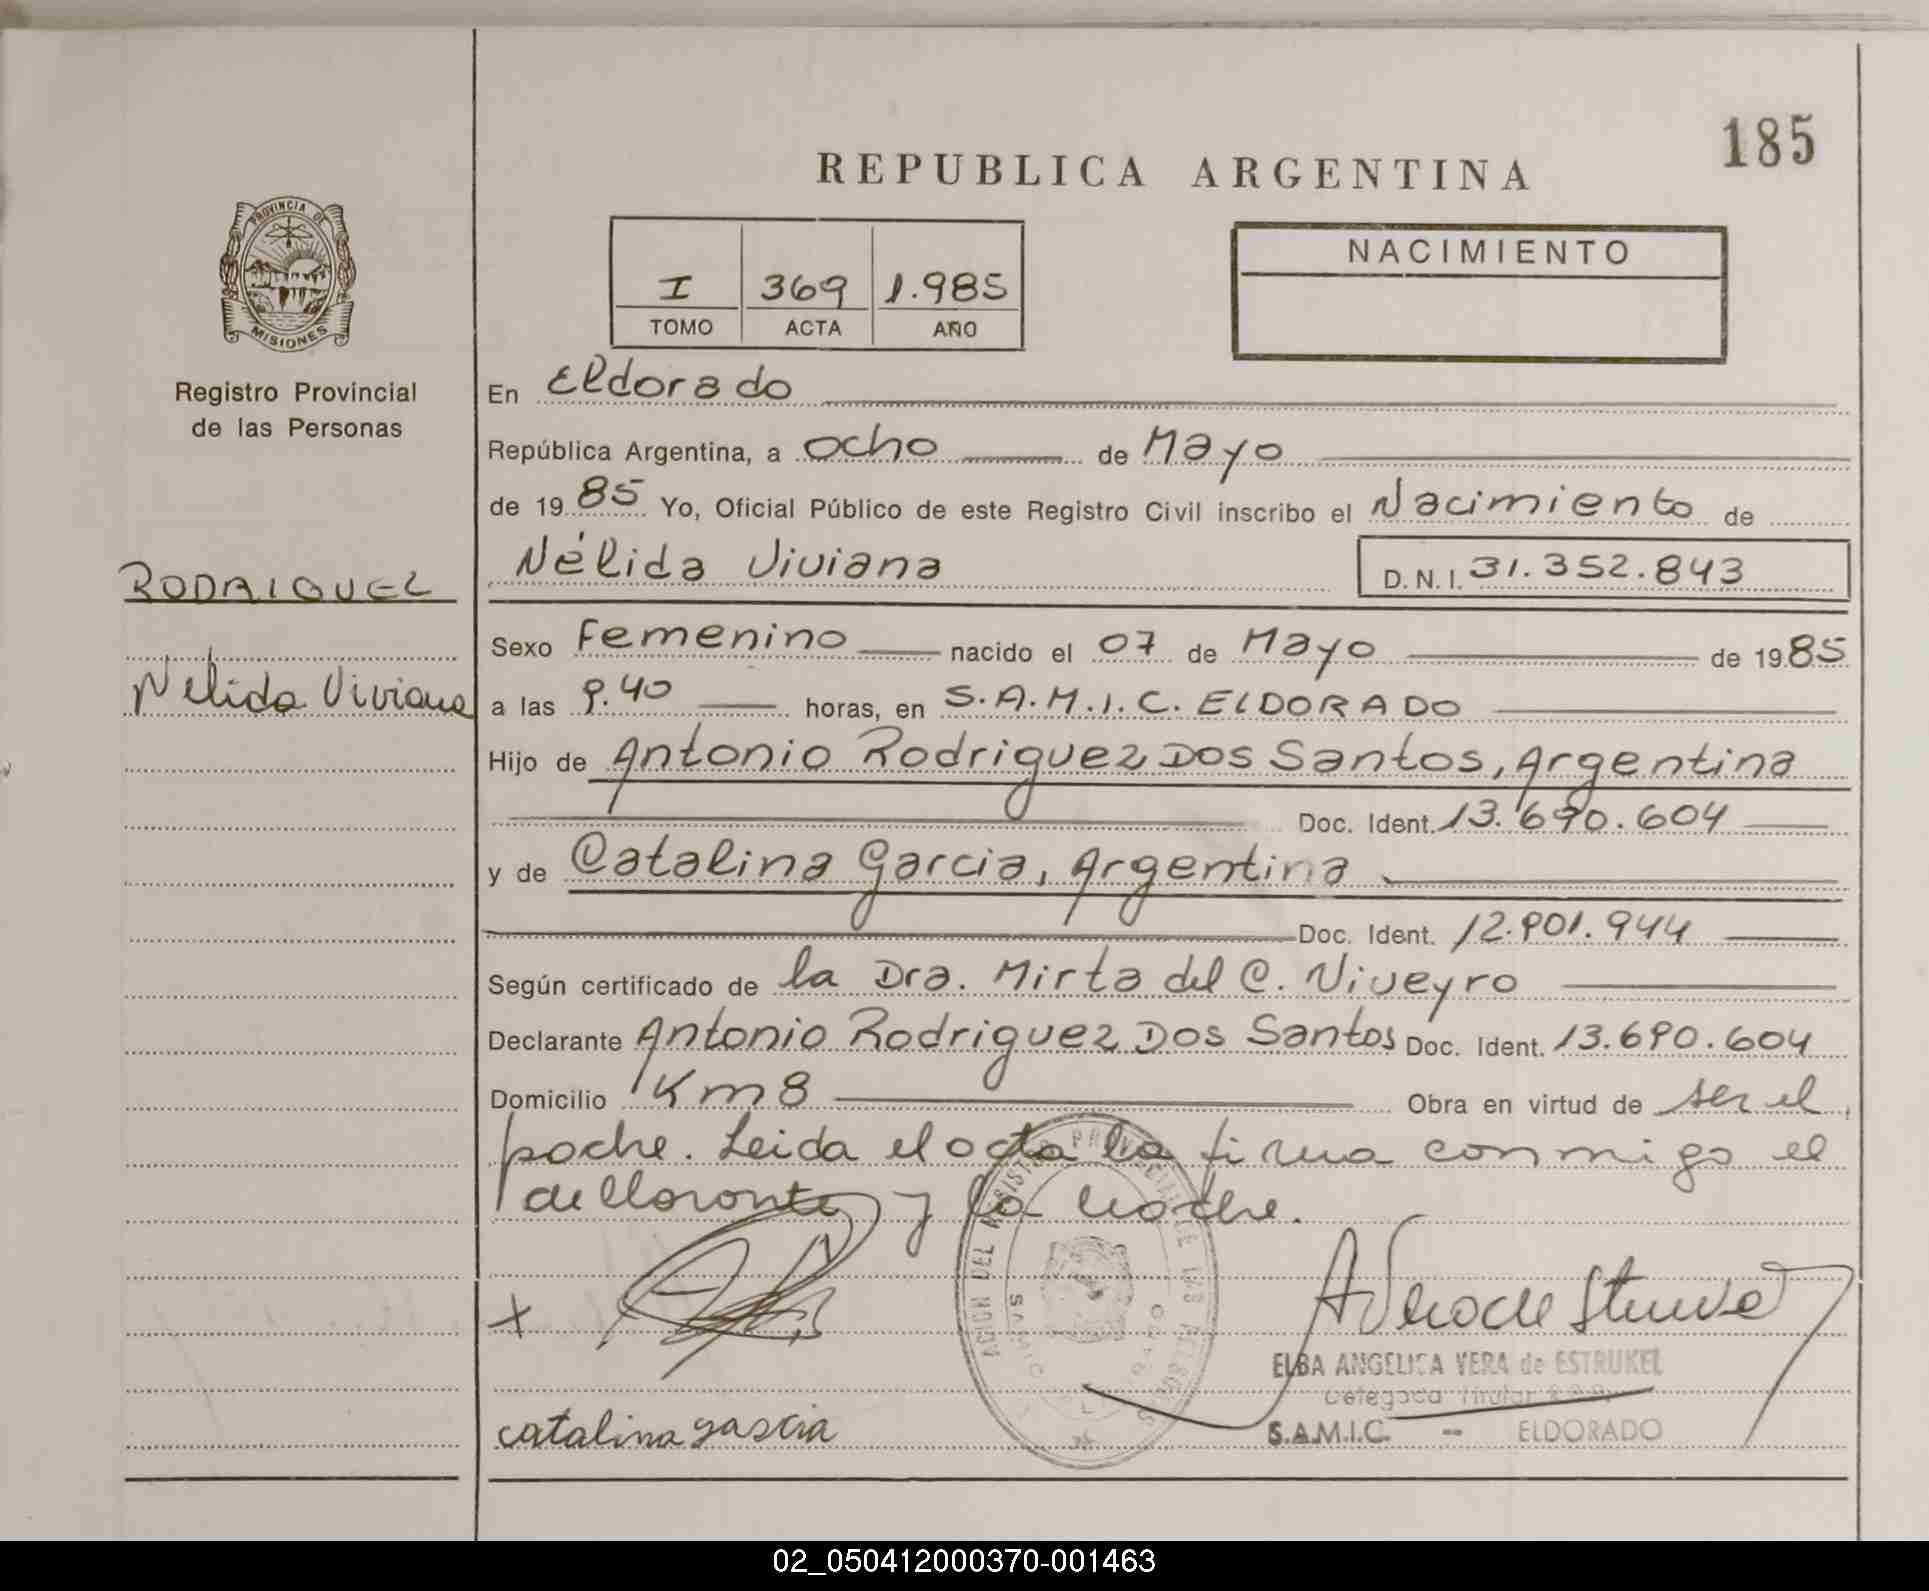 185
REPUBLICA ARGENTINA
PROVINCIA DE
MISIONES
Registro Provincial
de las Personas
RODRIGUEZ
Nelida Viviana
I 369 1.985
TOMO ACTA AÑO
NACIMIENTO
En Eldorado
República Argentina, a ocho de Mayo
de 1985 Yo, Oficial Público de este Registro Civil inscribo el Nacimiento de
Nélida Viviana D.N.I. 31.352.843
Sexo Femenino nacido el 07 de Mayo de 1985
a las 9.40 horas, en S.A.M.I.C. ELDORADO
Hijo de Antonio Rodriguez Dos Santos, Argentina
Doc. Ident. 13.690.604
y de Catalina Garcia, Argentina
Doc. Ident. 12.901.944
Según certificado de la Dra. Mirta del C. Niveyro
Declarante Antonio Rodriguez Dos Santos Doc. Ident. 13.690.604
Domicilio Km 8 Obra en virtud de ser el
padre. Leida el acta la firma conmigo el
declarante y la madre.
ELBA ANGELICA VERA de ESTRUKEL
Delegada Titular
S.A.M.I.C. - ELDORADO
catalina garcia
02_050412000370-001463